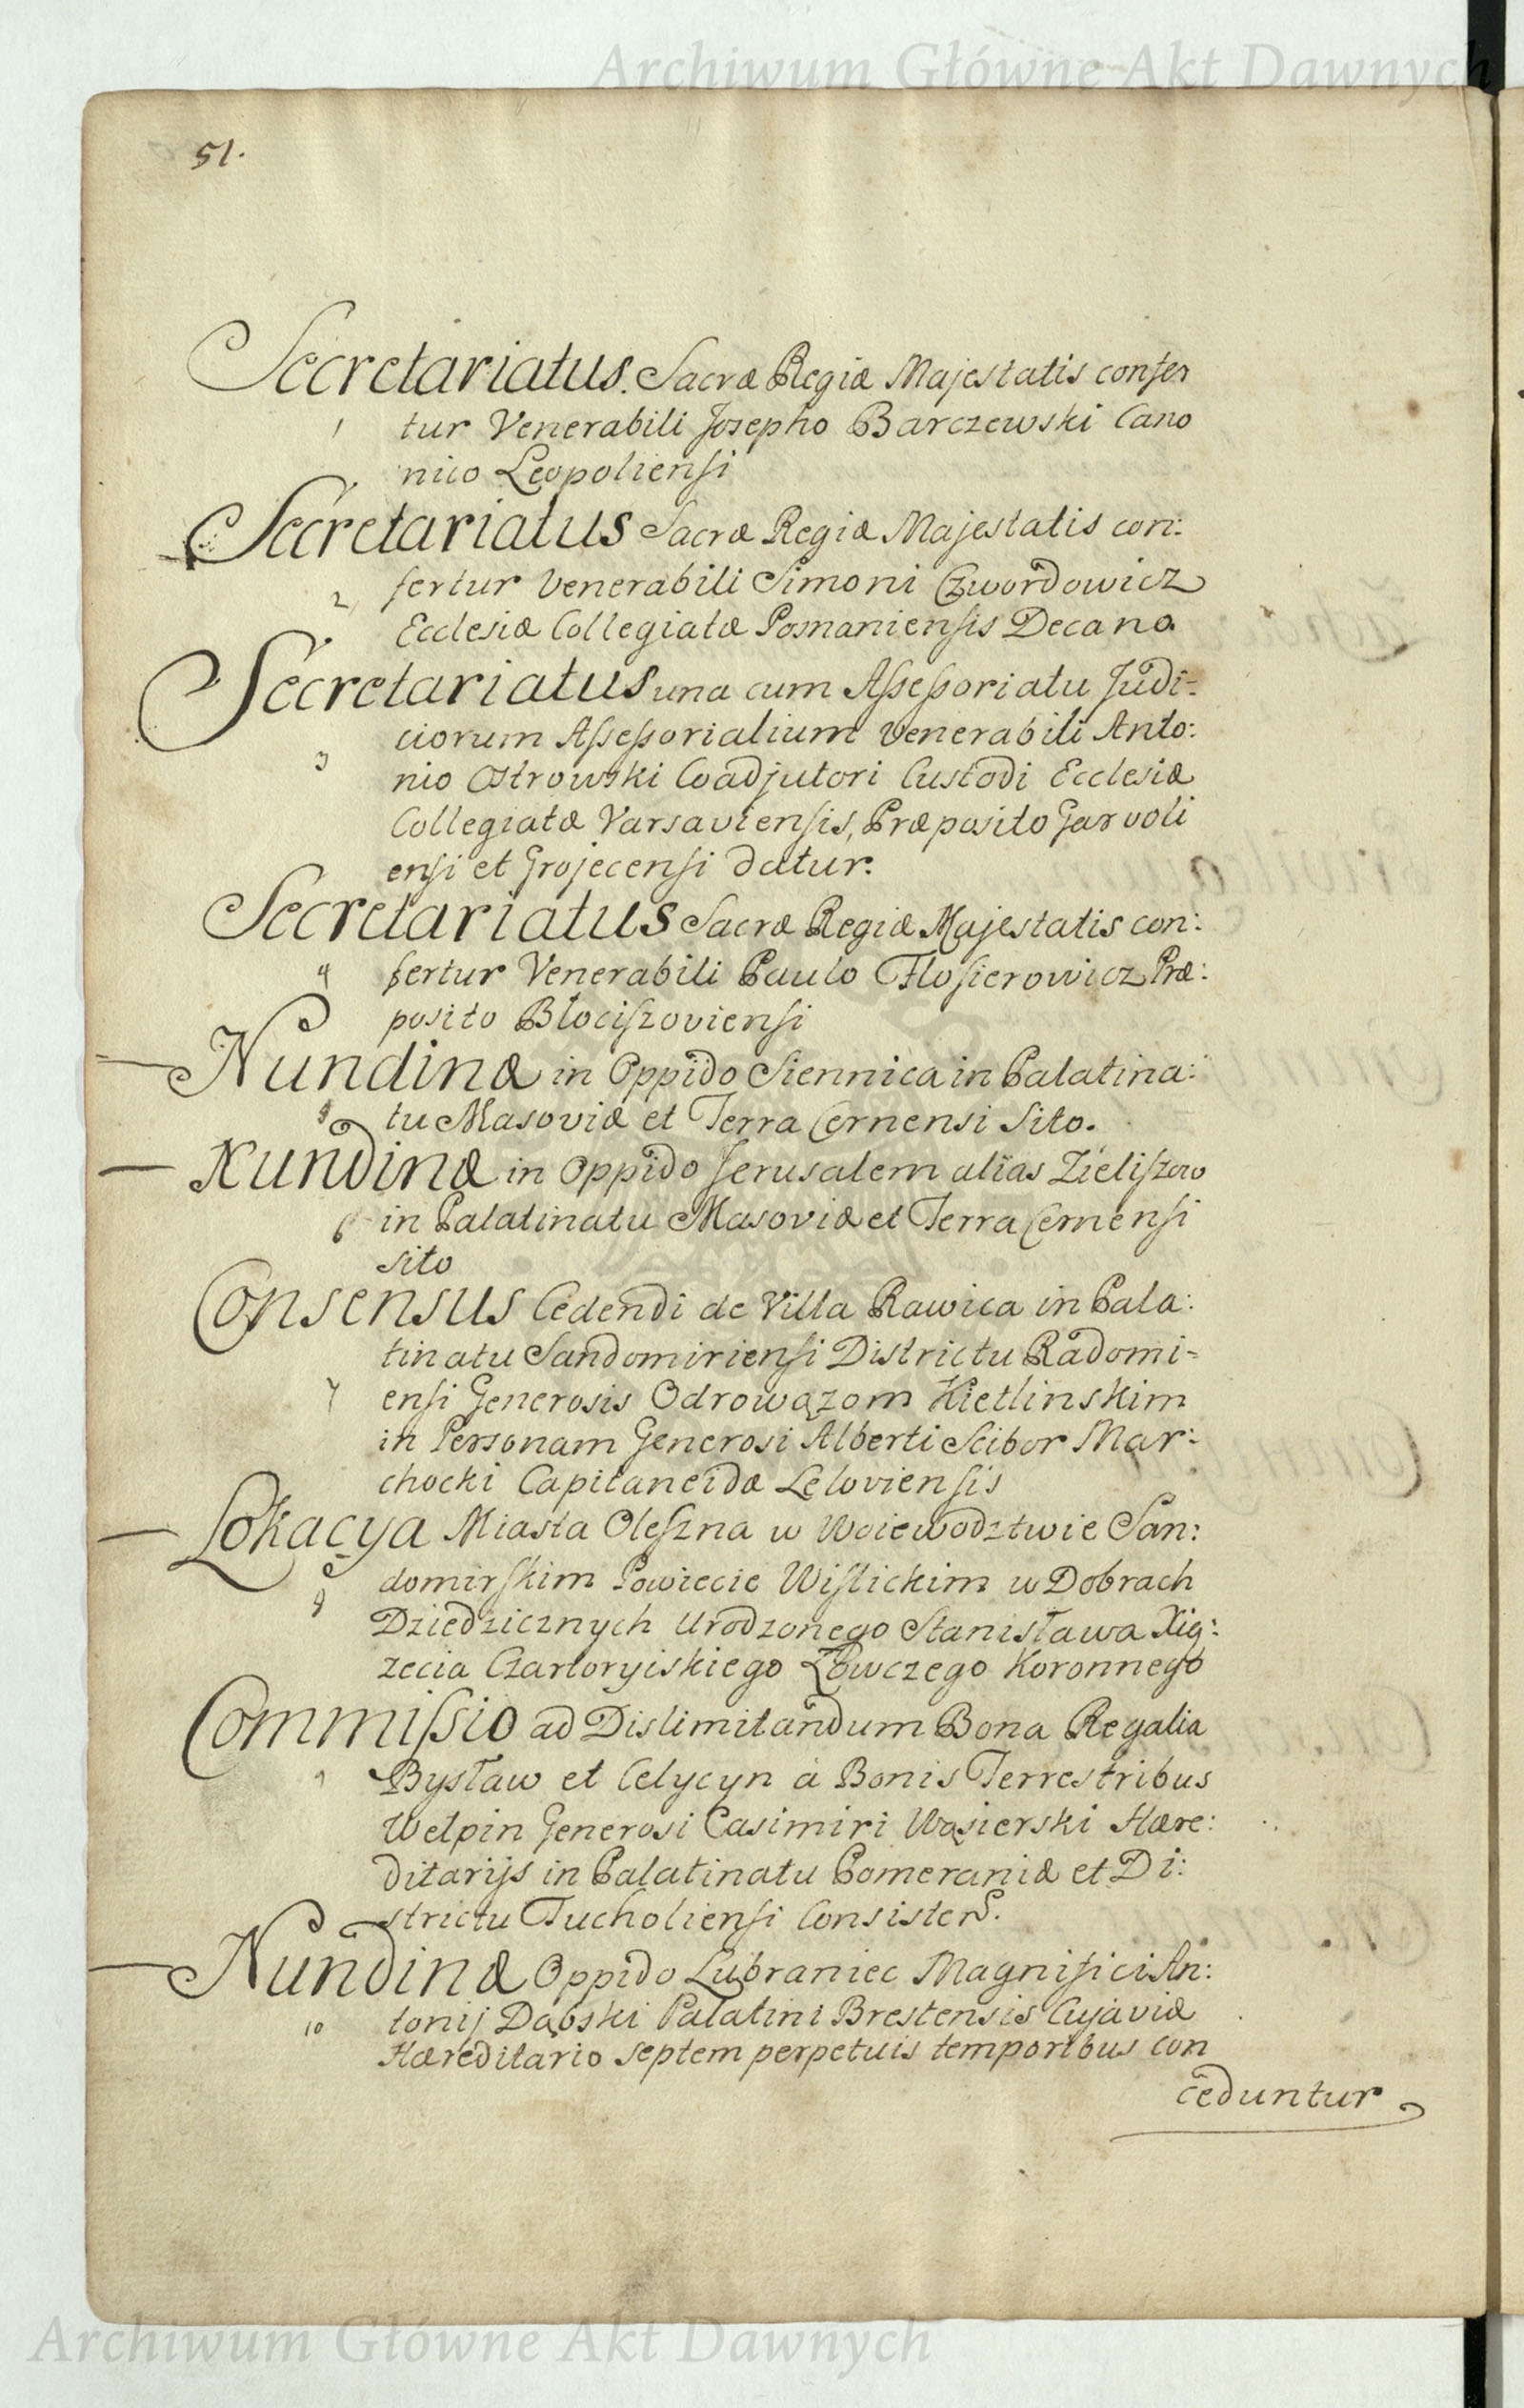 Archiwum Główne Akt Dawnych
51.
Secretariatus. Sacræ Regiæ Majestatis confer
1 tur Venerabili Josepho Barczewski Cano
nico Leopoliensi
Secretariatus Sacræ Regiæ Majestatis con:
2 fertur Venerabili Simoni Czwordowicz
Ecclesiæ Collegiatæ Posnaniensis Decano
Secretariatus una cum Assessoriatu Judi=
ciorum Assessorialium Venerabili Anto:
3 nio Ostrowski Coadjutori Custodi Ecclesiæ
Collegiatæ Varsaviensis, Præposito Garvoli
ensi et Grojecensi datur.
Secretariatus Sacræ Regiæ Majestatis con:
4 fertur Venerabili Paulo Flosierowicz Præ:
posito Błociszoviensi
Nundinæ in Oppido Siennica in Palatina:
5 tu Masoviæ et Terra Cernensi Sito.
Nundinæ in Oppido Jerusalem alias Zieliszew
6 in Palatinatu Masoviæ et Terra Cernensi
sito
Consensus Cedendi de Villa Rawica in Pala:
tinatu Sandomiriensi Districtu Radomi=
7 ensi Generosis Odrowązom Kietlinskim
in Personam Generosi Alberti Scibor Mar:
chocki Capitaneidæ Leloviensis
Lokacya Miasta Oleszna w Woiewodztwie San:
8 domirskim Powiecie Wislickim w Dobrach
Dziedzicznych Urodzonego Stanisława Xią:
zecia Czartoryiskiego Łowczego Koronnego
Commissio ad Dislimitandum Bona Regalia
9 Bysław et Celycyn à Bonis Terrestribus
Welpin Generosi Casimiri Wąsierski Hære:
ditarijs in Palatinatu Pomeraniæ et Di:
strictu Tucholiensi Consisten.
Nundinæ Oppido Lubraniec Magnifici An:
10 tonij Dąbski Palatini Brestensis Cujaviæ
Hæreditario septem perpetuis temporibus con
ceduntur
Archiwum Główne Akt Dawnych